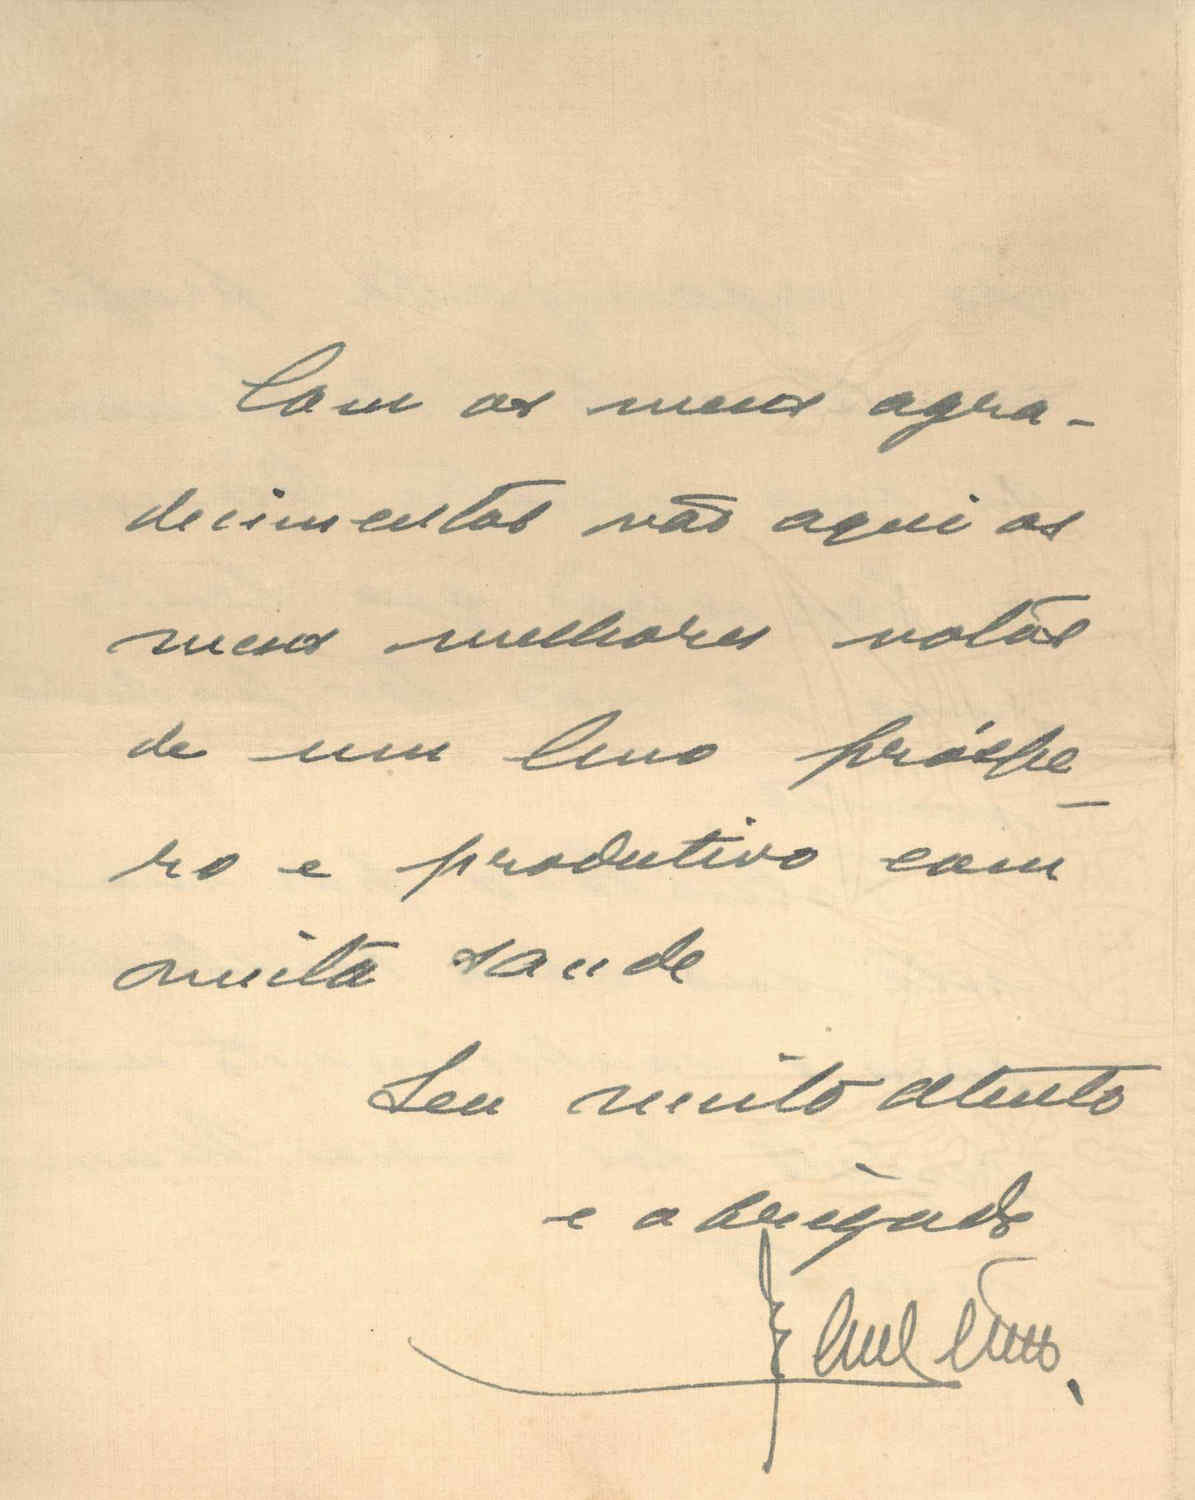 Com os meus agra-
decimentos vão aqui os
meus melhores votos
de um Anno próspe-
ro e produtivo com
muita saude
Seu muito atento
e obrigado